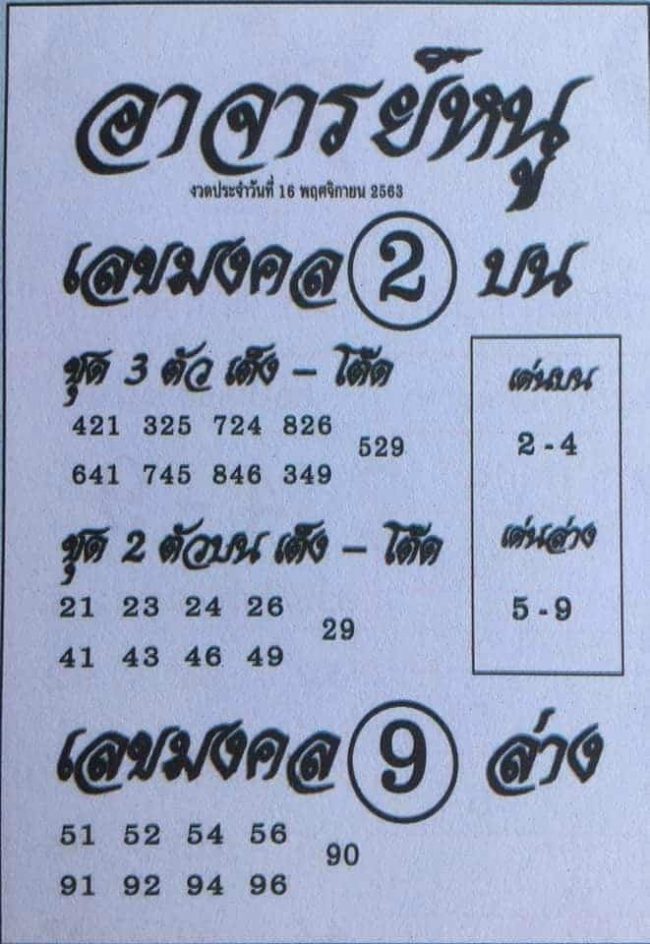 อาจารย์หนู
งวดประจำวันที่ 16 พฤศจิกายน 2563
เลขมงคล 2 บน
ชุด 3 ตัว เต็ง – โต๊ด
421 325 724 826
529
641 745 846 349
เด่นบน
2 - 4
ชุด 2 ตัวบน เต็ง – โต๊ด
21 23 24 26
29
41 43 46 49
เด่นล่าง
5 - 9
เลขมงคล 9 ล่าง
51 52 54 56
90
91 92 94 96